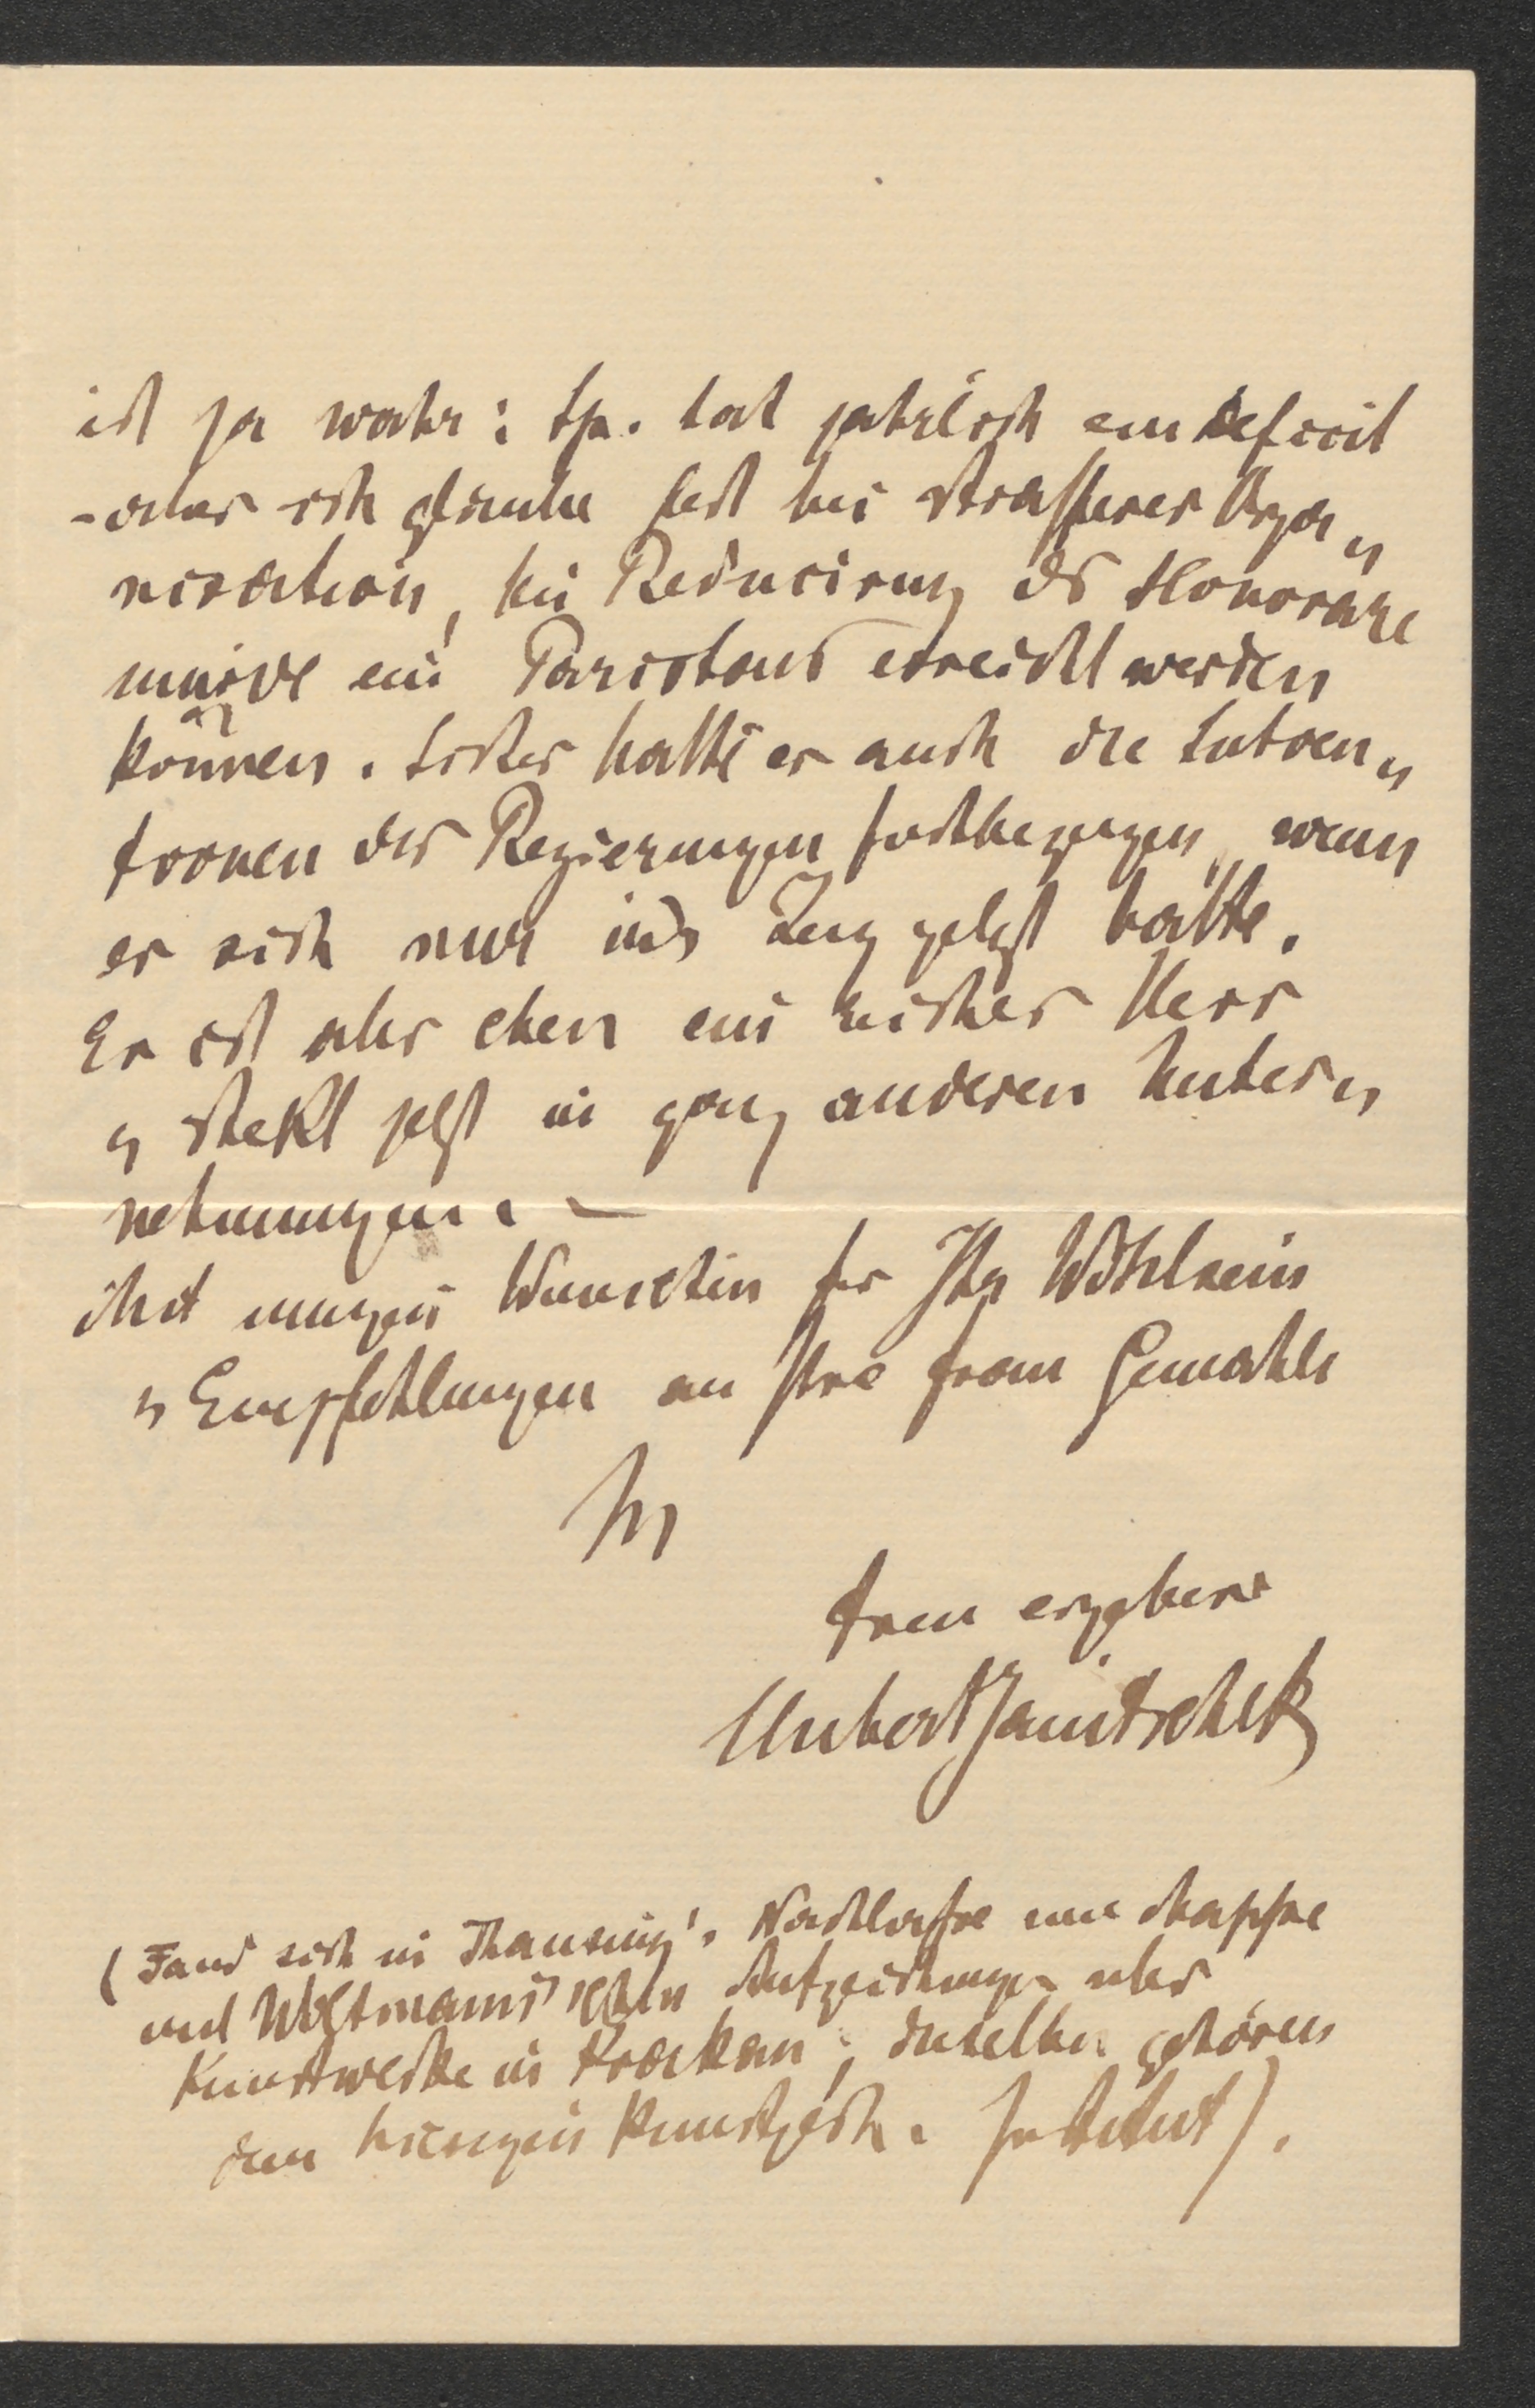 ist ja wahr: Sp. hat jährlich ein Deficit
- aber ich glaube fest bei strafferer Orga„
nisation, bei Reducirung der Honorare
würde ein Paristand erreicht werden
können. Sicher hätte er auch die Subven„
tionen der Regierungen fortbezogen, wenn
er sich nur ins Zeug gelegt hätte.
Er ist aber eben ein reicher Herr
u steckt jetzt in ganz anderen Unter„
nehmungen. —
Mit innigen Wünschen für Ihr Wohlsein
u Empfehlungen an Ihre Frau Gemahlin
Ihr
treu ergebener
Hubert Janitschek
(Fand sich in Thausing's Nachlasse eine Mappe
mit Woltmann'schen Aufzeichnungen über
Kunstwerke in Krakau; dieselben gehören
dem hiesigen kunstgesch. Institut).